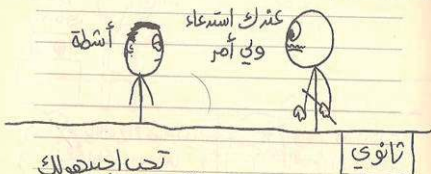 عندك استدعاء
ولي أمر
أشطة
ثانوي
تحب اجيبهولك